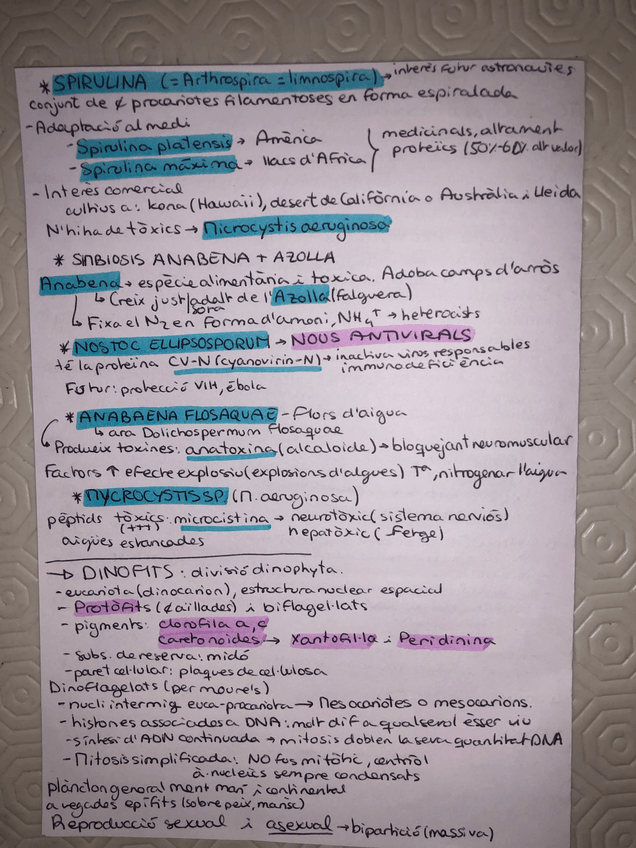 * SPIRULINA (=Arthrospira = limnospira) → interès futur astronautes
conjunt de ¢ procariotes filamentoses en forma espiralada
- Adaptació al medi
- Spirulina platensis → Amèrica
- Spirulina màxima → llacs d'Àfrica
} medicinals, altament
proteics (50%-60% alt valor)
- Interès comercial
cultius a: Kona (Hawaii), desert de Califòrnia o Austràlia i Lleida
N'hi ha de tòxics → Microcystis aeruginosa
* SIMBIOSIS ANABENA + AZOLLA
Anabena → espècie alimentària i tòxica. Adoba camps d'arròs
↳ Creix just adalt de l'Azolla (falguera)
sora
↳ Fixa el N2 en forma d'amoni, NH4+ → heterocists
* NOSTOC ELLIPSOSPORUM → NOUS ANTIVIRALS
té la proteïna CV-N (cyanovirin-N) → inactiva virus responsables
immunodeficiència
Futur: protecció VIH, èbola
* ANABAENA FLOSAQUAE - Flors d'aigua
↳ ara Dolichospermum Flosaquae
Produeix toxines: anatoxina (alcaloide) → bloquejant neuromuscular
Factors ↑ efecte explosiu (explosions d'algues) Tª, nitrogenar l'aigua
* MYCROCYSTIS SP (M. aeruginosa)
pèptids tòxics: microcistina → neurotòxic (sistema nerviós)
(+++) hepatòxic (fetge)
aigües estancades
→ DINOFITS: divisió dinophyta.
- eucariota (dinocarion), estructura nuclear espacial
- Protòfits (¢ aïllades) i biflagel·lats
- pigments: clorofila a, c
carotenoides → xantofil·la i Peridinina
- subs. de reserva: midó
- paret cel·lular: plaques de cel·lulosa
Dinoflagelats (per moure's)
- nucli intermig euca-procariota → Mesocariotes o mesocarions.
- histones associades a DNA: molt dif a qualsevol ésser viu
- síntesi d'ADN continuada → mitosis doblen la seva quantitat DNA
- Mitosis simplificada: NO fos mitòtic, centríol
à nucleics sempre condensats
plàncton generalment marí i continental
a vegades epífits (sobre peix, marisc)
Reproducció sexual i asexual → bipartició (massiva)